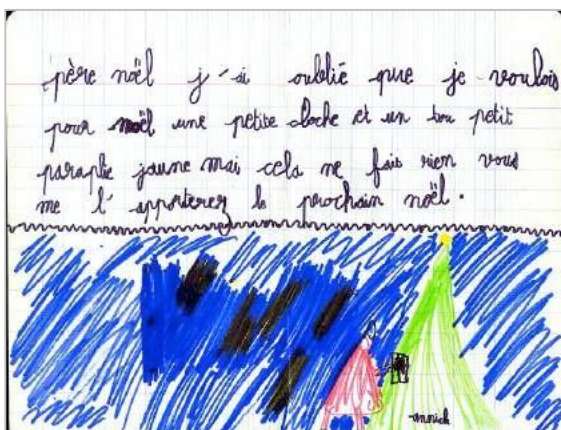 père noël j'ai oublié que je voulois
pour noël une petite cloche et un tou petit
paraplie jaune mai cela ne fais rien vous
me l'apporterez le prochain noël.
annick